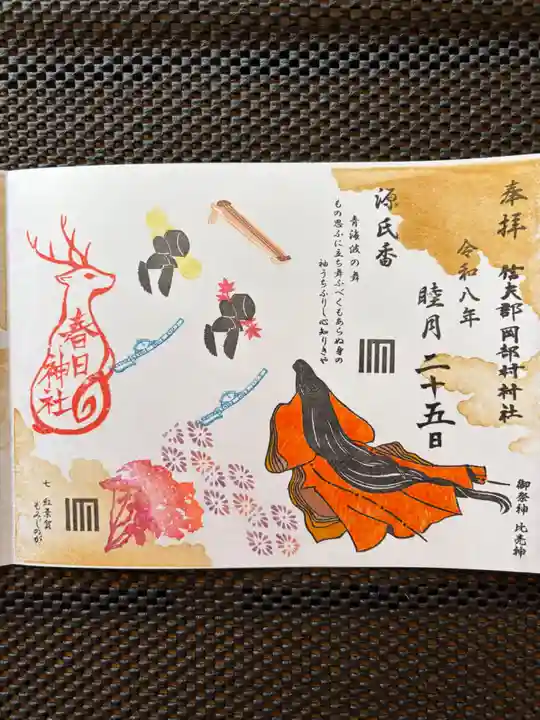 奉拝
信夫郡岡部村村社
御祭神 比売神
令和八年
睦月二十五日
源氏香
青海波の舞
もの思ふに立ち舞ふべくもあらぬ身の
袖うちふりし心知りきや
春日
神社
七 紅葉賀
もみじのが